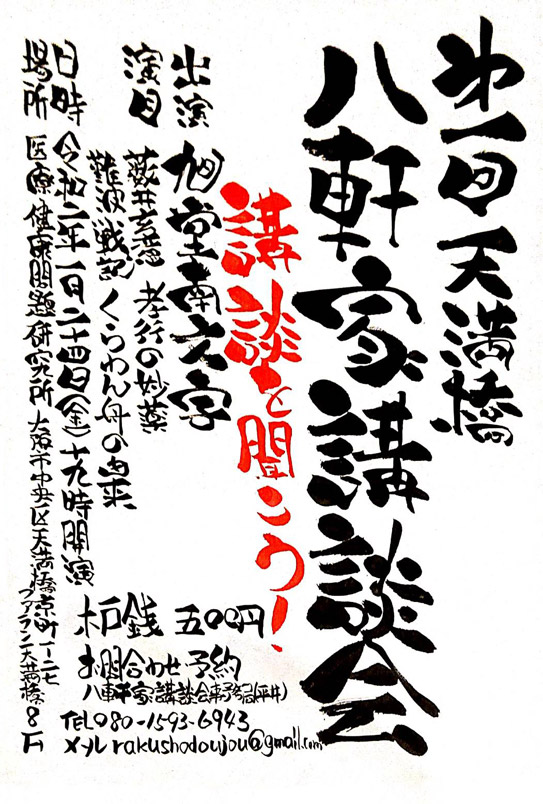 第一回 天満橋
八軒家講談会
講談を聞こう!
出演 旭堂南文字
演目 藪井玄意 孝行の妙薬
難波戦記 くらわん舟の由来
日時 令和二年一月二十四日(金)十九時開演
場所 医療健康問題研究所 大阪市中央区天満橋京町一-二七
ファラン天満橋8F
木戸銭 五〇〇円
お問合わせ 予約
八軒家講談会事務局(平井)
TEL 080-1593-6943
メール rakushodoujou@gmail.com